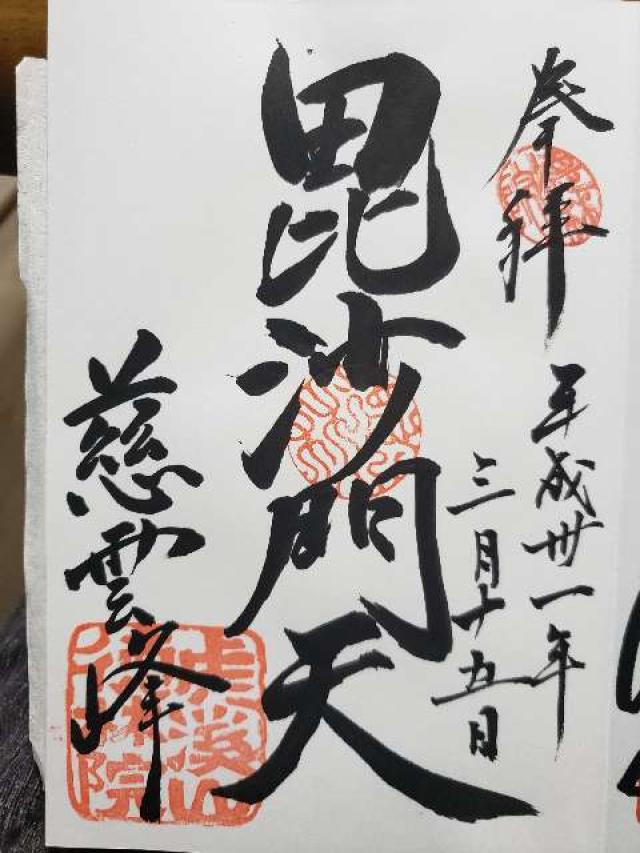 奉拝
平成卅一年
三月十五日
毘沙門天
慈雲峰